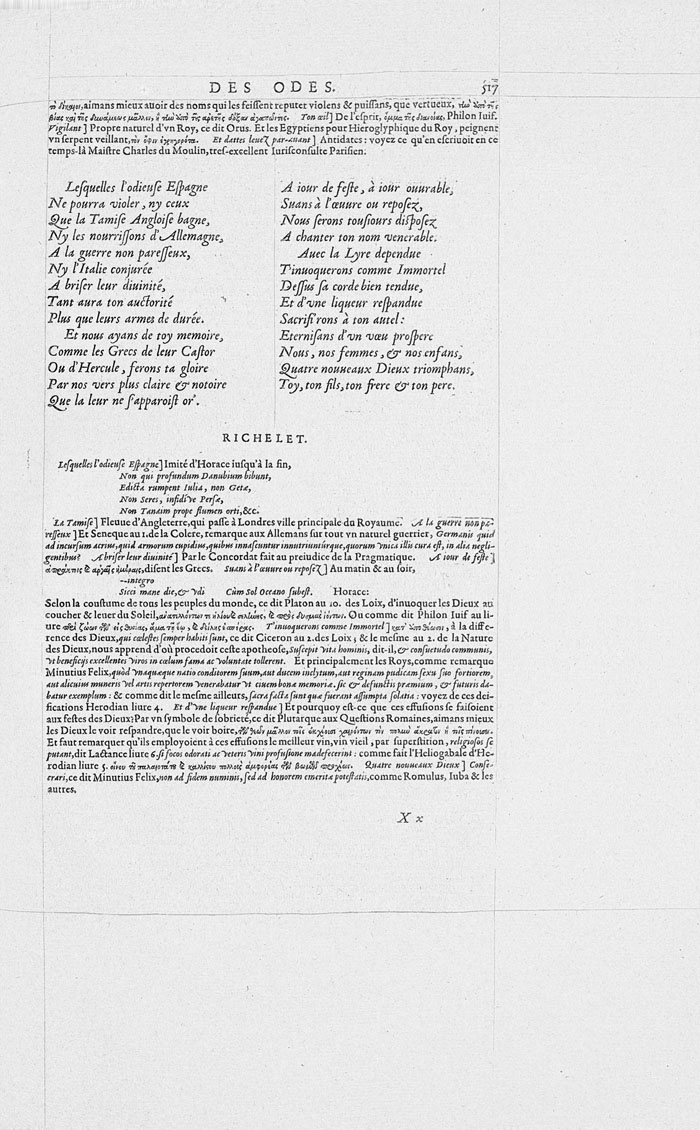 DES ODES. 517
aimans mieux auoir des noms qui les feissent reputer violens & puissans, que vertueux,
De l'esprit, Philon Iuif.
Vigilant ] Propre naturel d'vn Roy, ce dit Orus. Et les Egyptiens pour Hieroglyphique du Roy, peignent
vn serpent veillant, Et dattes leuez par-auant ] Antidates: voyez ce qu'en escriuoit en ce
temps-là Maistre Charles du Moulin, tres-excellent Iurisconsulte Parisien:
Lesquelles l'odieuse Espagne
Ne pourra violer, ny ceux
Que la Tamise Angloise bagne,
Ny les nourrissons d'Allemagne,
A la guerre non paresseux,
Ny l'Italie coniurée
A briser leur diuinité,
Tant aura ton auctorité
Plus que leurs armes de durée.
Et nous ayans de toy memoire,
Comme les Grecs de leur Castor
Ou d'Hercule, ferons ta gloire
Par nos vers plus claire & notoire
Que la leur ne s'apparoist or'.
A iour de feste, à iour ouurable,
Suans à l'œuure ou reposez,
Nous serons tousiours disposez
A chanter ton nom venerable.
Auec la Lyre dependue
T'inuoquerons comme Immortel
Dessus sa corde bien tendue,
Et d'vne liqueur respandue
Sacrifirons à ton autel:
Eternisans d'vn vœu prospere
Nous, nos femmes, & nos enfans,
Quatre nouueaux Dieux triomphans,
Toy, ton fils, ton frere & ton pere.
RICHELET.
Lesquelles l'odieuse Espagne] Imité d'Horace iusqu'à la fin,
Non qui profundum Danubium bibunt,
Edicta rumpent Iulia, non Getæ,
Non Seres, infidive Persæ,
Non Tanaim prope flumen orti, &c.
La Tamise ] Fleuue d'Angleterre, qui passe à Londres ville principale du Royaume. A la guerre non pa-
resseux ] Et Seneque au 1. de la Colere, remarque aux Allemans sur tout vn naturel guerrier, Germanis quid
ad incursum acrius, quid armorum cupidius, quibus innascuntur innutriunturque, quorum vnica illis cura est, in alia negli-
gentibus? A briser leur diuinité ] Par le Concordat fait au preiudice de la Pragmatique. A iour de feste ]
disent les Grecs. Suans à l'œuure ou reposez ] Au matin & au soir,
--integro
Sicci mane die, & vdi Cùm Sol Oceano subest. Horace:
Selon la coustume de tous les peuples du monde, ce dit Platon au 10. des Loix, d'inuoquer les Dieux au
coucher & leuer du Soleil, Ou comme dit Philon Iuif au li-
ure T'inuoquerons comme Immortel ] à la diffe-
rence des Dieux, qui cælestes semper habiti sunt, ce dit Ciceron au 2. des Loix; & le mesme au 2. de la Nature
des Dieux, nous apprend d'où procedoit ceste apotheose, Suscepit vita hominis, dit-il, & consuetudo communis,
vt beneficijs excellentes viros in cœlum fama ac voluntate tollerent. Et principalement les Roys, comme remarque
Minutius Felix, quòd vnaquæque natio conditorem suum, aut ducem inclytum, aut reginam pudicam sexu suo fortiorem,
aut alicuius muneris vel artis repertorem venerabatur vt ciuem bonæ memoriæ. sic & defunctis præmium, & futuris da-
batur exemplum: & comme dit le mesme ailleurs, sacra facta sunt quæ fuerant assumpta solatia: voyez de ces dei-
fications Herodian liure 4. Et d'vne liqueur respandue ] Et pourquoy est-ce que ces effusions se faisoient
aux festes des Dieux? Par vn symbole de sobrieté, ce dit Plutarque aux Questions Romaines, aimans mieux
les Dieux le voir respandre, que le voir boire,
Et faut remarquer qu'ils employoient à ces effusions le meilleur vin, vin vieil, par superstition, religiosos se
putant, dit Lactance liure 6. si focos odorati ac veteris vini profusione madefecerint: comme fait l'Heliogabale d'He-
rodian liure 5. Quatre nouueaux Dieux ] Conse-
crari, ce dit Minutius Felix, non ad fidem numinis, sed ad honorem emeritæ potestatis, comme Romulus, Iuba & les
autres.
X x